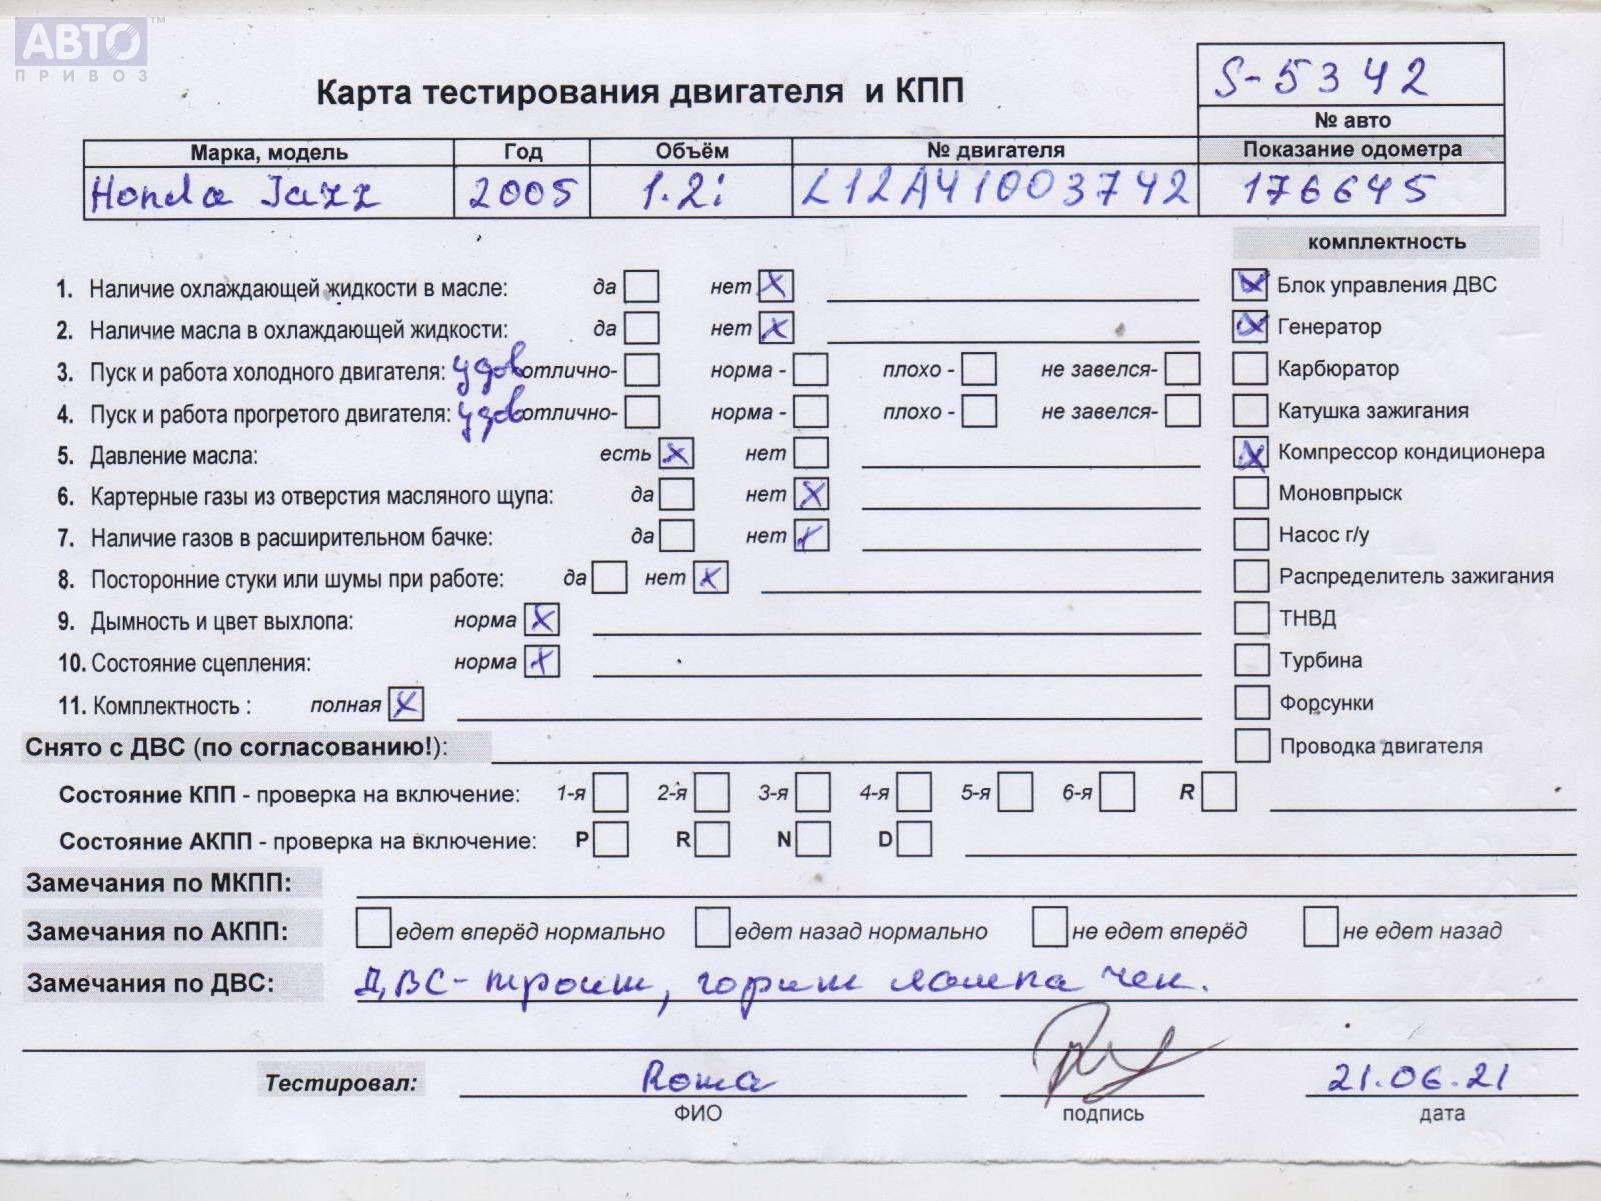 АВТО™
ПРИВОЗ
Карта тестирования двигателя и КПП
S-5342
№ авто
Марка, модель Год Объём № двигателя Показание одометра
Honda Jazz 2005 1.2i L12A41003742 176645
комплектность
1. Наличие охлаждающей жидкости в масле: да нет X Блок управления ДВС
2. Наличие масла в охлаждающей жидкости: да нет X Генератор
3. Пуск и работа холодного двигателя: удов отлично- норма - плохо - не завелся- Карбюратор
4. Пуск и работа прогретого двигателя: удов отлично- норма - плохо - не завелся- Катушка зажигания
5. Давление масла: есть X нет Компрессор кондиционера
6. Картерные газы из отверстия масляного щупа: да нет X Моновпрыск
7. Наличие газов в расширительном бачке: да нет X Насос г/у
8. Посторонние стуки или шумы при работе: да нет X Распределитель зажигания
9. Дымность и цвет выхлопа: норма X ТНВД
10. Состояние сцепления: норма X Турбина
11. Комплектность : полная X Форсунки
Снято с ДВС (по согласованию!): Проводка двигателя
Состояние КПП - проверка на включение: 1-я 2-я 3-я 4-я 5-я 6-я R
Состояние АКПП - проверка на включение: P R N D
Замечания по МКПП:
Замечания по АКПП: едет вперёд нормально едет назад нормально не едет вперёд не едет назад
Замечания по ДВС: ДВС-троит, горит лампа чек.
Тестировал: Рома 21.06.21
ФИО подпись дата